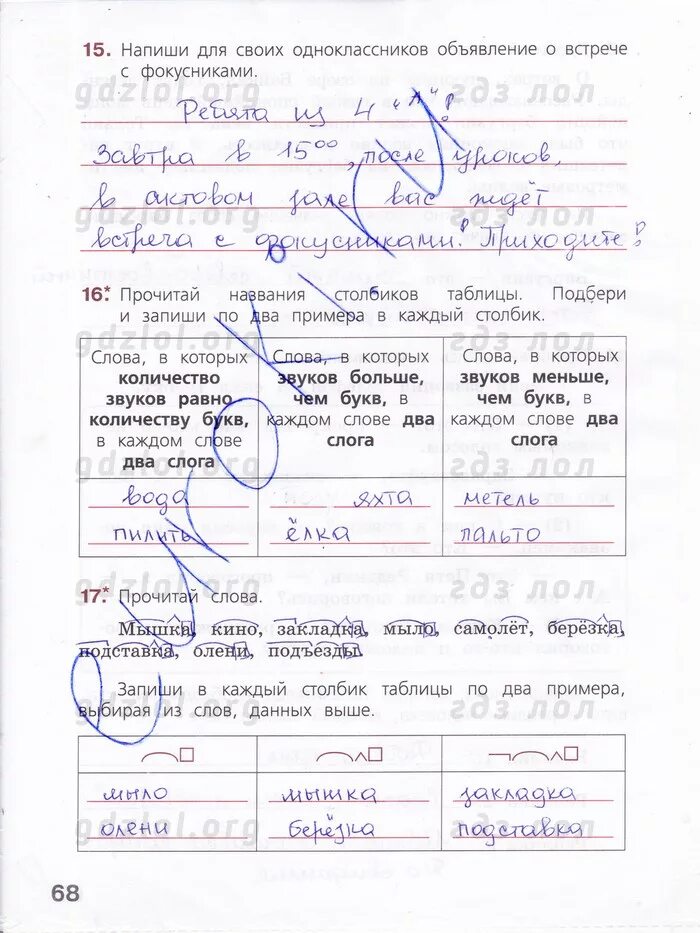 15. Напиши для своих одноклассников объявление о встрече
с фокусниками.
gdzlol.org гдз лол
Ребята из 4 "А"!
Завтра в 15⁰⁰, после уроков,
gdzlol.org гдз лол
в актовом зале вас ждёт
встреча с фокусниками! Приходите!
16* Прочитай названия столбиков таблицы. Подбери
и запиши по два примера в каждый столбик.
gdzlol.org гдз лол
Слова, в которых количество звуков равно количеству букв, в каждом слове два слога
Слова, в которых звуков больше, чем букв, в каждом слове два слога
Слова, в которых звуков меньше, чем букв, в каждом слове два слога
gdzlol.org гдз лол
вода яхта метель
пилить ёлка пальто
gdzlol.org гдз лол
17* Прочитай слова.
Мышка, кино, закладка, мыло, самолёт, берёзка,
подставка, олени, подъезды.
Запиши в каждый столбик таблицы по два примера,
выбирая из слов, данных выше.
gdzlol.org гдз лол
мыло мышка закладка
олени берёзка подставка
gdzlol.org гдз лол
68